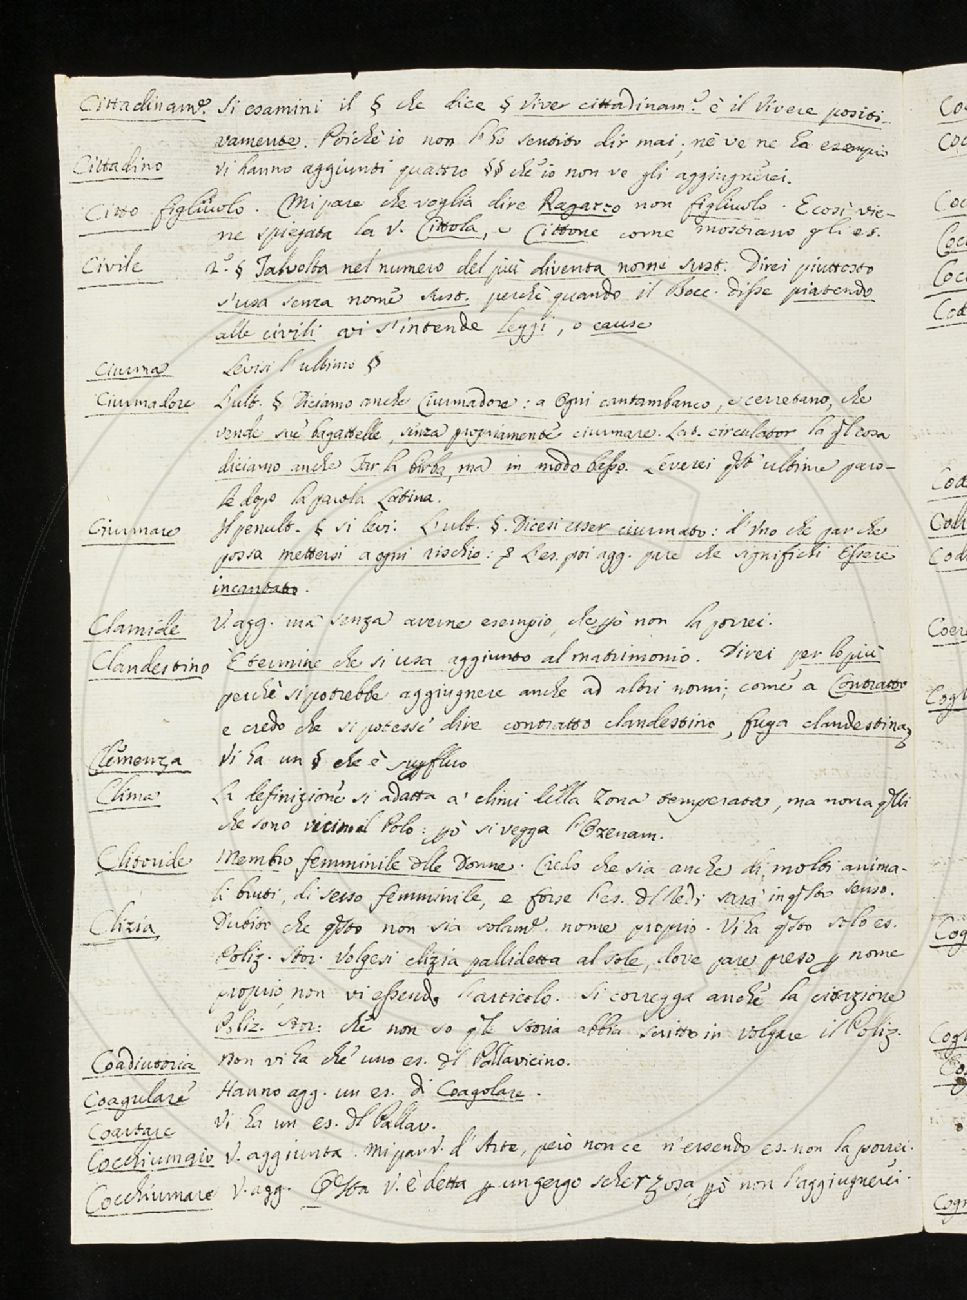 Cittadinam.e Si esamini il § che dice § Viver cittadinam.e è il Vivere positi-
vamente. Poichè io non l'ho sentito dir mai; nè ve ne ha esempio
Cittadino vi hanno aggiunti quattro §§ ch'io non ve gli aggiugnerei.
Citto figliuolo. Mi pare che voglia dire Ragazzo non figliuolo. E così vie-
ne spiegata la V. Cittola, e Cittone come mostrano gli es.
Civile 2.° § Talvolta nel numero del più diventa nome sust. Direi piuttosto
s'usa senza nome sust. perchè quando il Bocc. disse piatendo
alle civili vi s'intende leggi, o cause
Ciurma Levisi l'ultimo §
Ciurmadore L'ult. § Diciamo anche Ciurmadore: a Ogni cantambanco, e cerretano, che
vende sue bagattelle, senza propriamente ciurmare. Lat. circulator la qle cosa
diciamo anche Far la birba, ma in modo basso. Leverei qste ultime paro-
le dopo la parola Latina.
Ciurmare Il penult. § si levi. L'ult. §. Dicesi esser ciurmato: d'Uno che par che
possa mettersi a ogni rischio: § L'es. poi agg. pare che significhi Essere
incantato.
Clamide V. agg. ma senza averne esempio, che però non la porrei.
Clandestino È termine che si usa aggiunto al matrimonio. Direi per lo più
perchè si potrebbe aggiugnere anche ad altri nomi; come a Contratto
e credo che si potesse dire contratto clandestino, fuga clandestina
Clemenza Vi ha un § che è supfluo
Clima La definizione si adatta a' climi della Zona temperata, ma non a qlli
che sono vicini al Polo: pò si vegga l'Ozenam.
Clitoride Membro femminile dlle Donne. Credo che sia anche di molti anima-
li bruti, di sesso femminile, e forse l'es. dl Redi sarà in qsto senso.
Clizia Dubito che qsto non sia solam.e nome proprio. Vi ha qsto solo es.
Poliz. Stor. Volgesi clizia pallidetta al sole, dove pare preso p nome
proprio, non vi essendo l'articolo. Si corregga anche la citazione
Poliz. Stor: chè non so qle storia abbia scritto in volgare il Poliz.
Coadiutoria Non vi ha che uno es. dl Pallavicino.
Coagulare Hanno agg. un es. di Coagolare.
Coartare Vi ha un es. dl Pallav.
Cocchiumaio V. aggiunta. Mi par V. d'Arte, però non ce n'essendo es. non la porrei.
Cocchiumare V. agg. Qsta V. è detta p un gergo scherzoso, pò non l'aggiugnerei.